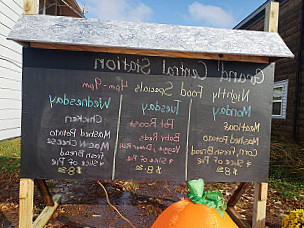 Grand Central Station
Nightly Food Specials 4pm-9pm
Monday
Meatloaf
Mashed Potato
Corn, Fresh Bread
+ Slice of Pie
$8
Tuesday
Pot Roast
Baby Reds
Veggie, Dinner Roll
+ Slice of Pie
$8
Wednesday
Chicken
Mashed Potato
Mac N Cheese
Fresh Bread
+ Slice of Pie
$8